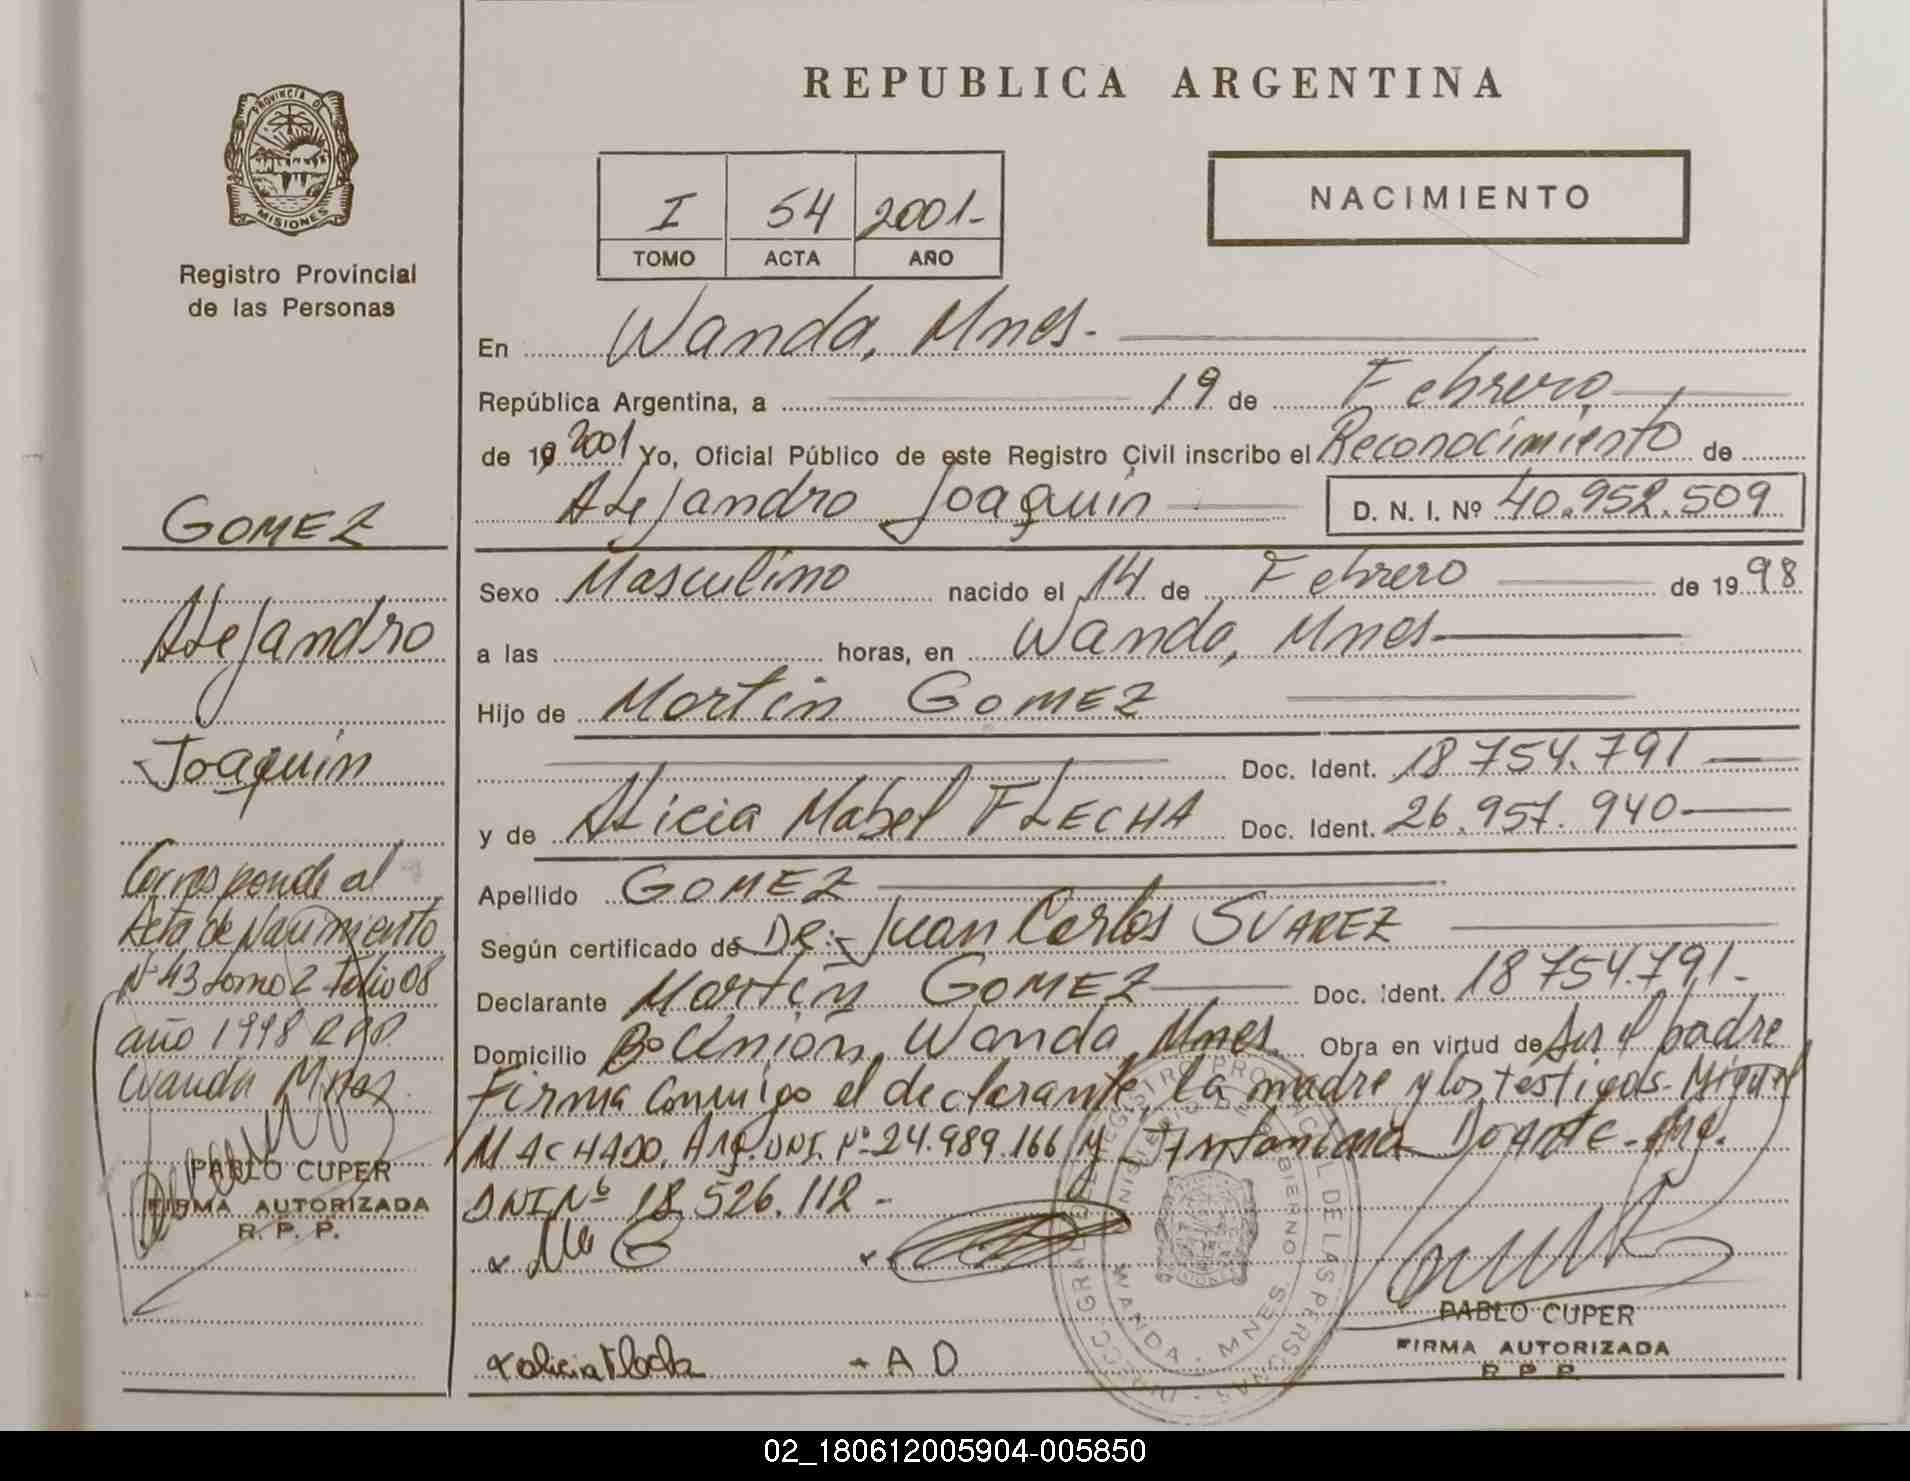 REPUBLICA ARGENTINA
PROVINCIA DE
MISIONES
Registro Provincial
de las Personas
I 54 2001-
TOMO ACTA AÑO
NACIMIENTO
En Wanda, Mnes.-
República Argentina, a 19 de Febrero
de 19 2001 Yo, Oficial Público de este Registro Civil inscribo el Reconocimiento de
Alejandro Joaquin D. N. I. Nº 40.952.509
Sexo Masculino nacido el 14 de Febrero de 19 98
a las horas, en Wanda, Mnes-
Hijo de Martin GOMEZ
Doc. Ident. 18 754.791
y de Alicia Mabel FLECHA Doc. Ident. 26.957.940
Apellido GOMEZ
Según certificado de De:- Juan Carlos SUAREZ
Declarante Martin GOMEZ Doc. Ident. 18 754.791-
Domicilio Bº Unión, Wanda, Mnes. Obra en virtud de Ser el padre
Firma conmigo el declarante, la madre y los testigos- Miguel
MACHADO, Arg. DNI. Nº 24.989.166 y Antonina Arg.
DNI Nº 18.526.112 -
x alicia flecha x A D
PABLO CUPER
FIRMA AUTORIZADA
R. P. P.
WANDA - MNES
GOMEZ
Alejandro
Joaquin
Corresponde al
Acta de Nacimiento
Nº 43 tomo 2 folio 08
año 1998 R.P.P.
Wanda Mnes.
PABLO CUPER
FIRMA AUTORIZADA
R. P. P.
02_180612005904-005850